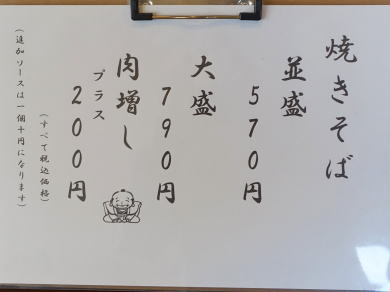 焼きそば
並盛
570円
大盛
790円
肉増し
プラス
200円
(すべて税込価格)
(追加ソースは一個十円になります)